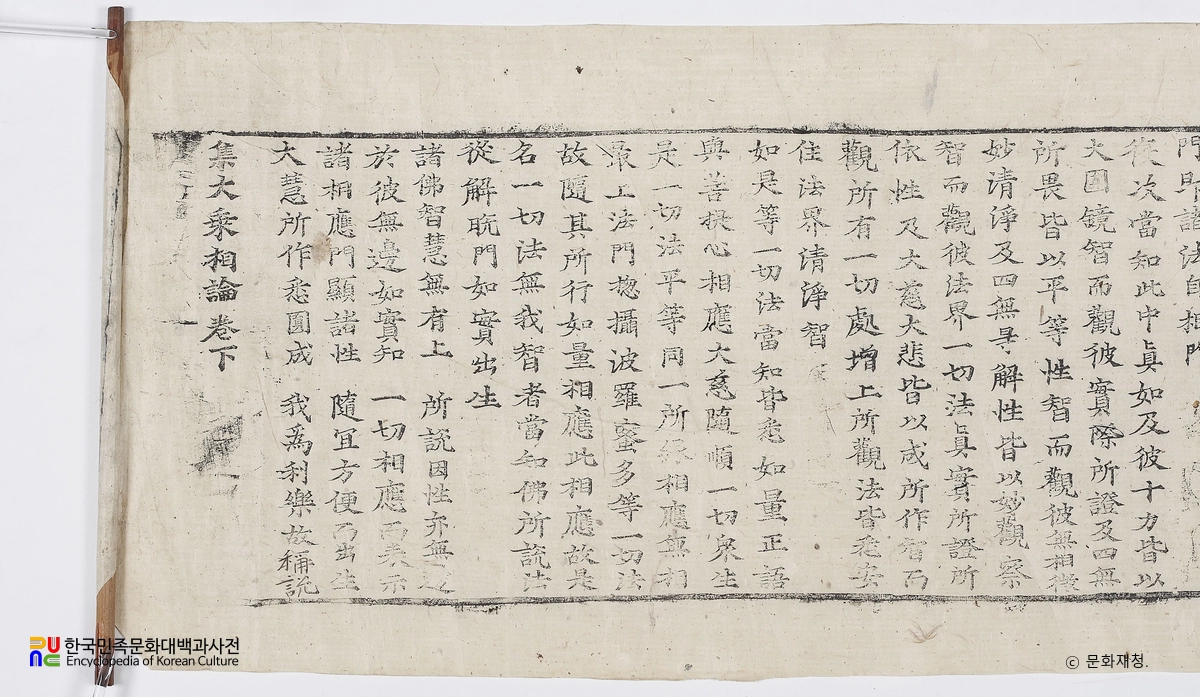 門財諸法自相門
從次當知此中眞如及彼十方皆以
大圓鏡智而觀彼實際所證及四無
所畏皆以平等性智而觀彼無相微
妙清淨及四無㝵解性皆以妙觀察
智而觀彼法界一切法眞實所證所
依性及大慈大悲皆以成所作智而
觀所有一切處增上所觀法皆悉安
住法界清淨智
如是等一切法當知皆悉如量正語
與菩提心相應大慈隨順一切衆生
是一切法平等同一所緣相應無相
最上法門揔攝波羅蜜多等一切法
故隨其所行如量相應此相應故是
名一切法無我智者當知佛所說法
從解脫門如實出生
諸佛智慧無有上 所說因性亦無邊
於彼無邊如實知 一切相應而表示
諸相應門顯諸性 隨宜方便而出生
大慧所作悉圓成 我爲利樂故稱說
集大乘相論卷下
한국민족문화대백과사전
Encyclopedia of Korean Culture
ⓒ 문화재청.